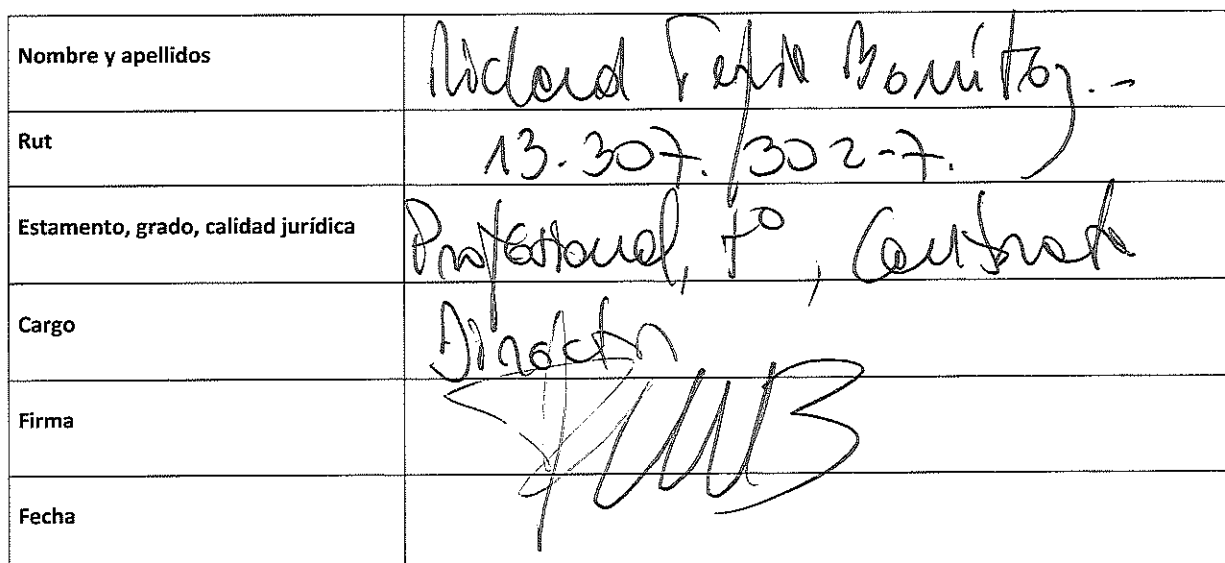 Nombre y apellidos Richard
Rut 13.307.302-7.
Estamento, grado, calidad jurídica Profesional, 7°, Contrata
Cargo Director
Firma
Fecha